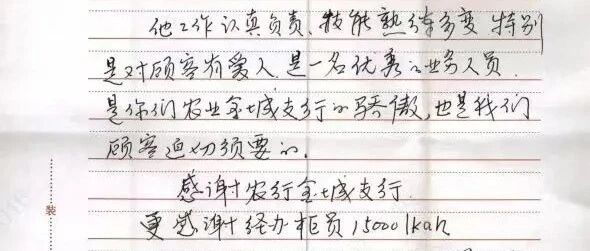 他工作认真负责、技能熟练多变 特别
是对顾客有爱人.是一名优秀的业务人员.
是你们农业金城支行的骄傲,也是我们
顾客迫切须要的.
感谢农行金城支行.
更感谢经办柜员15000
装